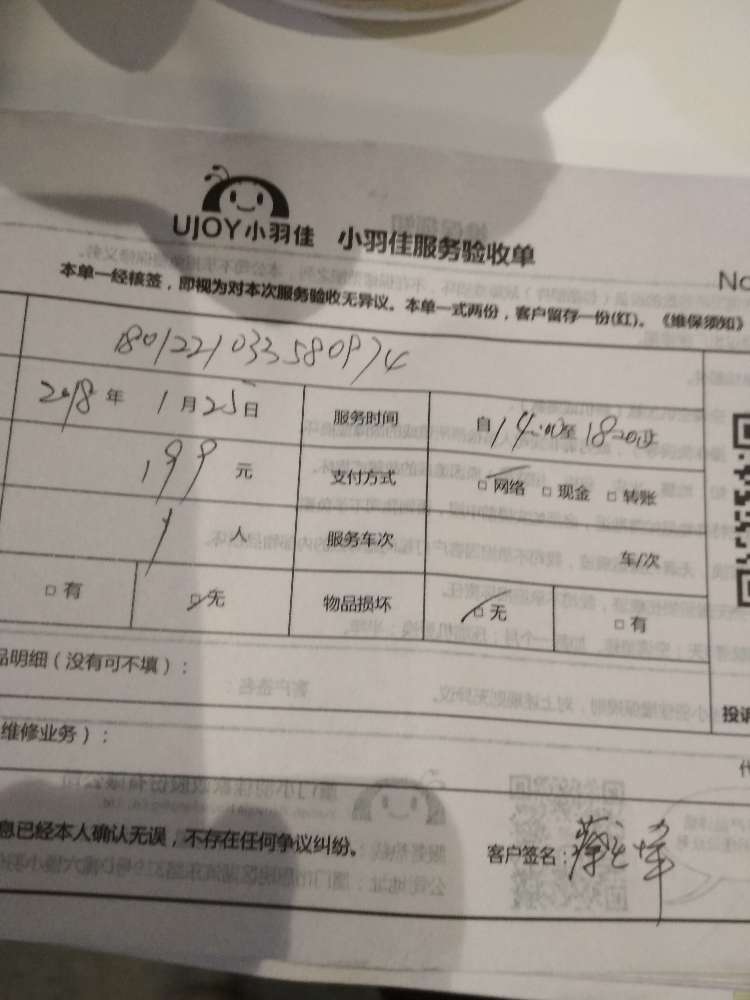 UJOY小羽佳 小羽佳服务验收单
No
本单一经核签，即视为对本次服务验收无异议。本单一式两份，客户留存一份(红)。《维保须知》
1801221033580974
2018年 1月25日 服务时间 自14:00至18:00止
199元 支付方式 □网络 □现金 □转账
1人 服务车次 车/次
□有 □无 物品损坏 □无 □有
品明细（没有可不填）：
投诉
维修业务）：
息已经本人确认无误，不存在任何争议纠纷。
客户签名：